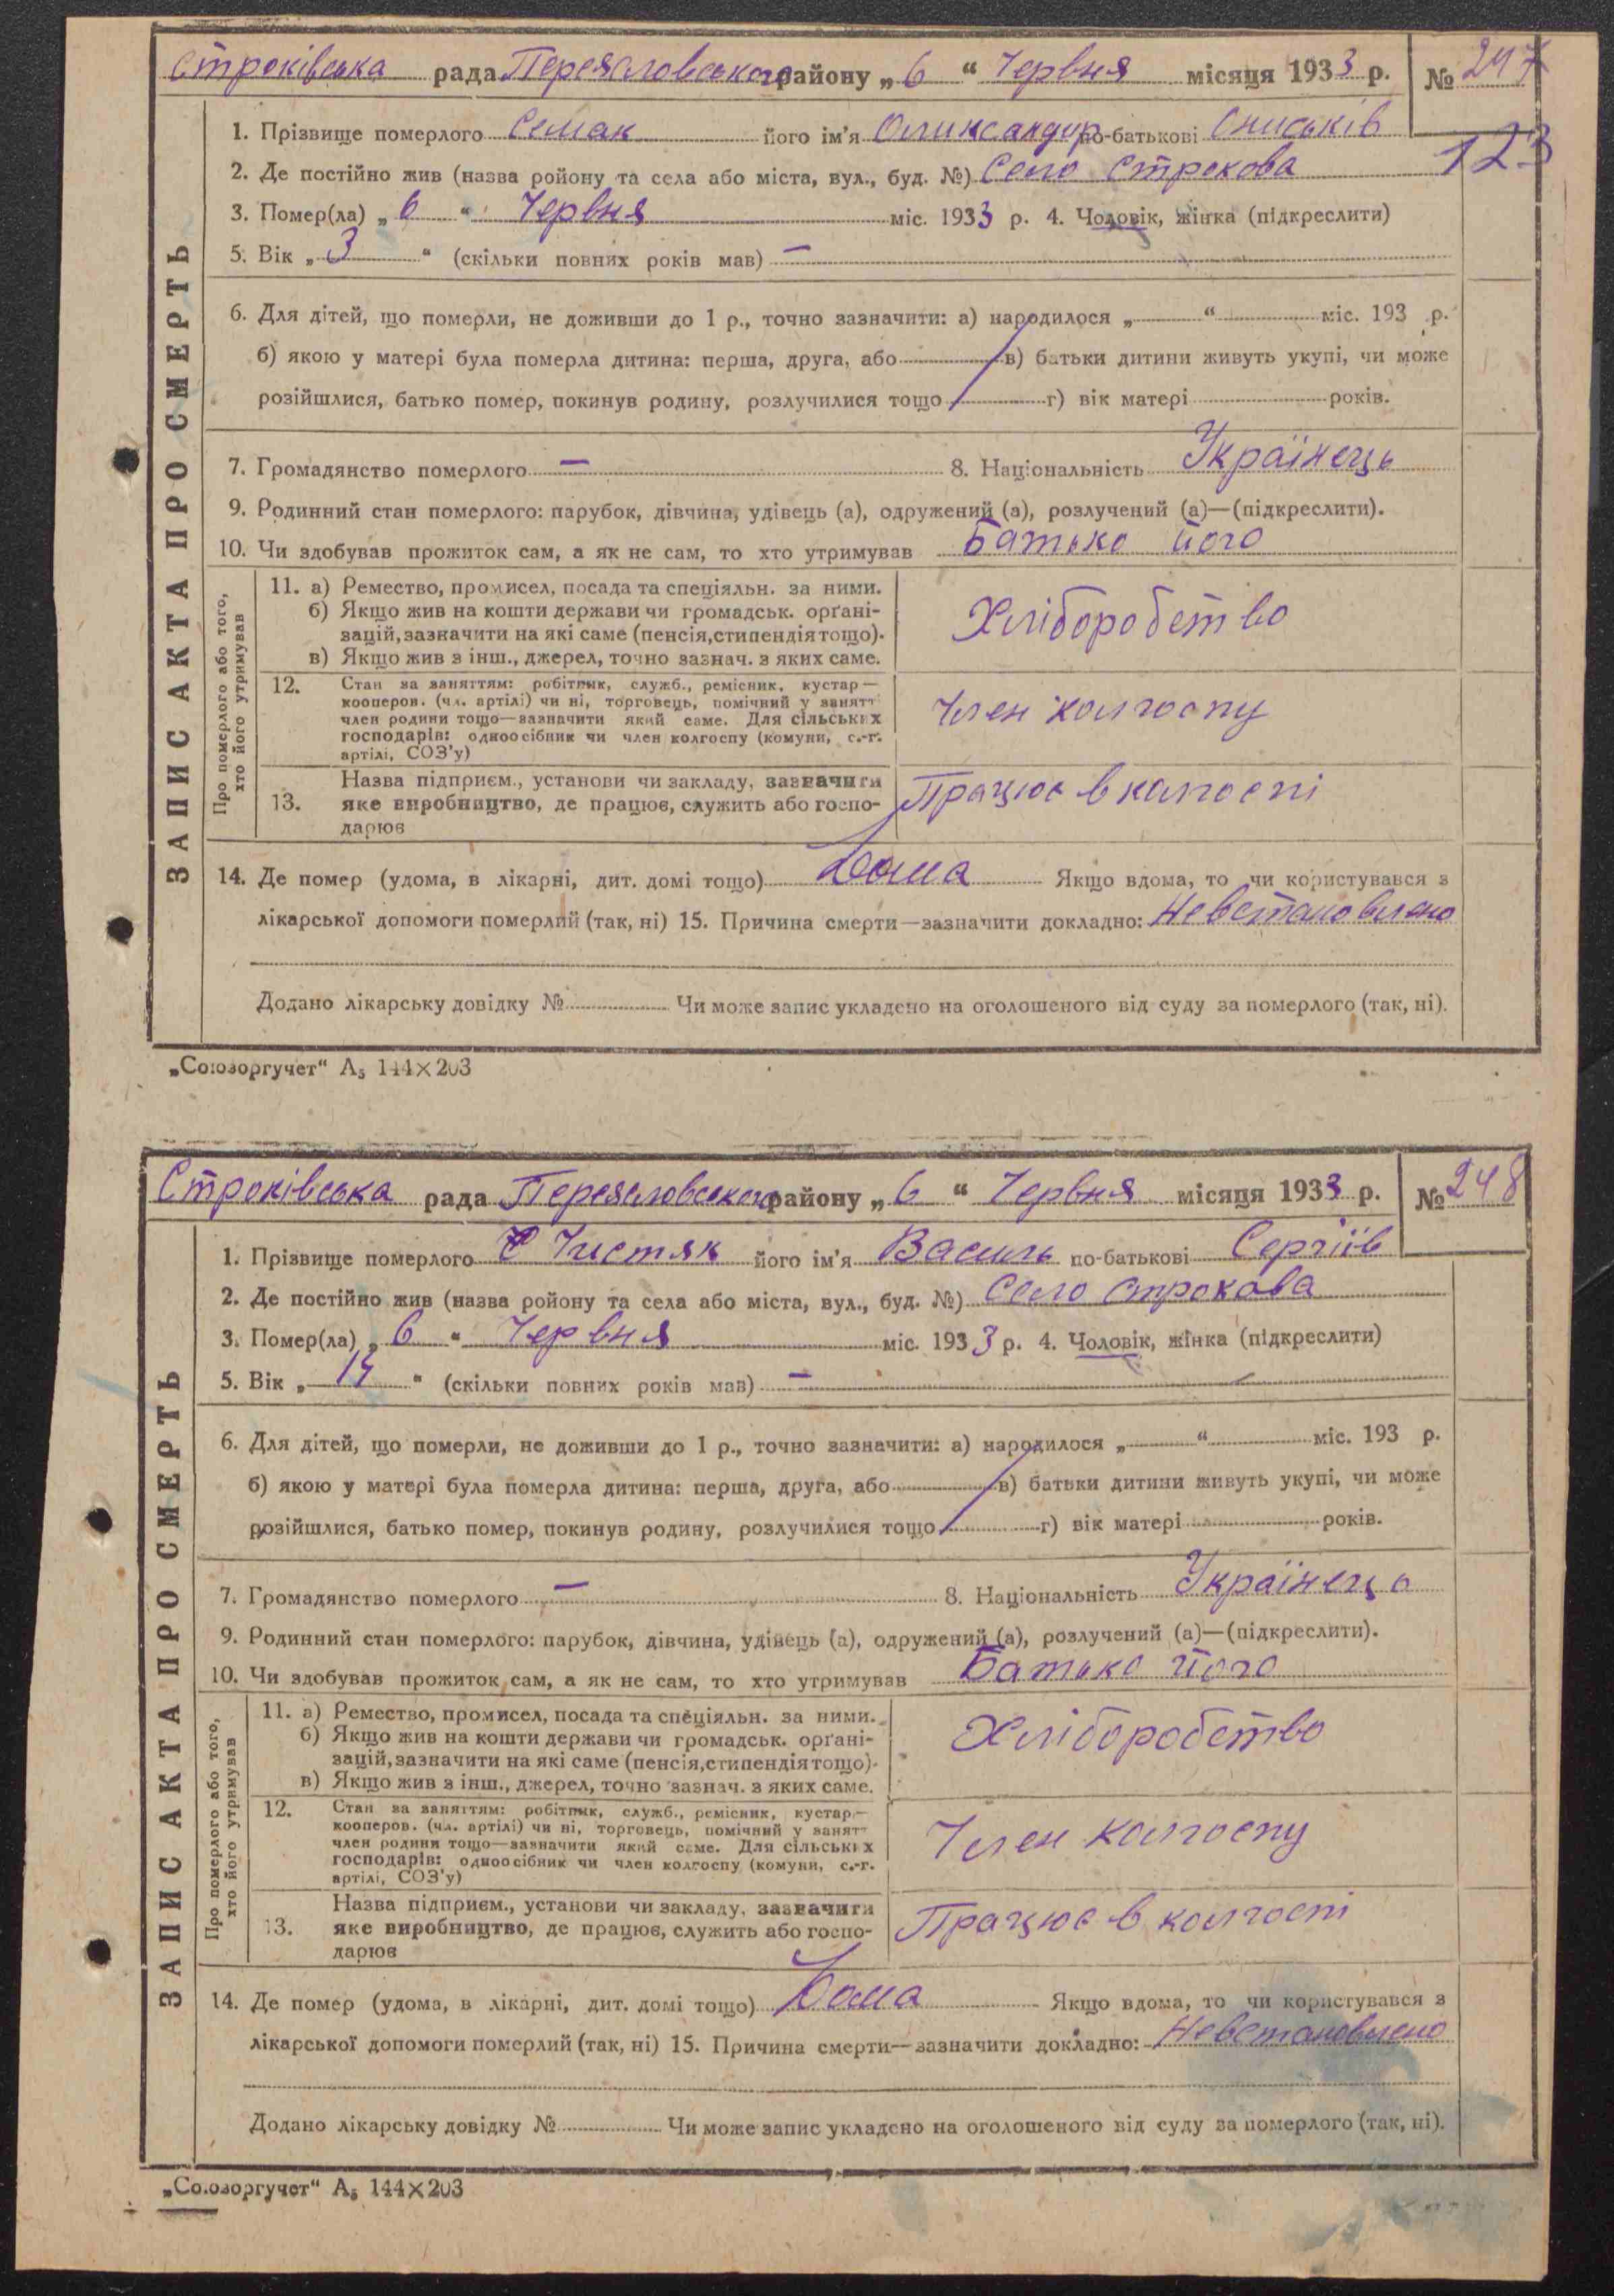 Строківська рада Переяславського району „ 6 “ Червня місяця 1933 р. № 247
123
1. Прізвище померлого Семак його ім'я Оликсандир по-батькові
2. Де постійно жив (назва ройону та села або міста, вул., буд. №) Село Строкова
3. Помер(ла) „ 6 “ Червня міс. 1933 р. 4. Чоловік, жінка (підкреслити)
5. Вік „ 3 “ (скільки повних років мав) —
6. Для дітей, що померли, не доживши до 1 р., точно зазначити: а) народилося „ “ міс. 193 р.
б) якою у матері була померла дитина: перша, друга, або в) батьки дитини живуть укупі, чи може
розійшлися, батько помер, покинув родину, розлучилися тощо г) вік матері років.
7. Громадянство померлого — 8. Національність Українець
9. Родинний стан померлого: парубок, дівчина, удівець (а), одружений (а), розлучений (а)—(підкреслити).
10. Чи здобував прожиток сам, а як не сам, то хто утримував Батько його
ЗАПИС АКТА ПРО СМЕРТЬ
Про померлого або того,
хто його утримував
11. а) Ремество, промисел, посада та спеціяльн. за ними.
б) Якщо жив на кошти держави чи громадськ. орґані-
зацій, зазначити на які саме (пенсія, стипендія тощо).
в) Якщо жив з інш., джерел, точно зазнач. з яких саме.
Хліборобство
12. Стан за заняттям: робітник, служб., ремісник, кустар—
кооперов. (чл. артілі) чи ні, торговець, помічний у занятт
член родини тощо—зазначити який саме. Для сільських
господарів: одноосібник чи член колгоспу (комуни, с.-г.
артілі, СОЗ'у)
Член колгоспу
13. Назва підприєм., установи чи закладу, зазначити
яке виробництво, де працює, служить або госпо-
дарює
Працює в колгоспі
14. Де помер (удома, в лікарні, дит. домі тощо) Дома Якщо вдома, то чи користувався з
лікарської допомоги померлий (так, ні) 15. Причина смерти—зазначити докладно: Невстановлено
Додано лікарську довідку № Чи може запис укладено на оголошеного від суду за померлого (так, ні).
„Союзоргучет“ А₅ 144×203
Строківська рада Переяславського району „ 6 “ Червня місяця 1933 р. № 248
1. Прізвище померлого Чистяк його ім'я Василь по-батькові Сергіїв
2. Де постійно жив (назва ройону та села або міста, вул., буд. №) Село Строкова
3. Помер(ла) „ 6 “ Червня міс. 1933 р. 4. Чоловік, жінка (підкреслити)
5. Вік „ 14 “ (скільки повних років мав) —
6. Для дітей, що померли, не доживши до 1 р., точно зазначити: а) народилося „ “ міс. 193 р.
б) якою у матері була померла дитина: перша, друга, або в) батьки дитини живуть укупі, чи може
розійшлися, батько помер, покинув родину, розлучилися тощо г) вік матері років.
7. Громадянство померлого — 8. Національність Українець
9. Родинний стан померлого: парубок, дівчина, удівець (а), одружений (а), розлучений (а)—(підкреслити).
10. Чи здобував прожиток сам, а як не сам, то хто утримував Батько його
ЗАПИС АКТА ПРО СМЕРТЬ
Про померлого або того,
хто його утримував
11. а) Ремество, промисел, посада та спеціяльн. за ними.
б) Якщо жив на кошти держави чи громадськ. орґані-
зацій, зазначити на які саме (пенсія, стипендія тощо).
в) Якщо жив з інш., джерел, точно зазнач. з яких саме.
Хліборобство
12. Стан за заняттям: робітник, служб., ремісник, кустар—
кооперов. (чл. артілі) чи ні, торговець, помічний у занятт
член родини тощо—зазначити який саме. Для сільських
господарів: одноосібник чи член колгоспу (комуни, с.-г.
артілі, СОЗ'у)
Член колгоспу
13. Назва підприєм., установи чи закладу, зазначити
яке виробництво, де працює, служить або госпо-
дарює
Працює в колгоспі
14. Де помер (удома, в лікарні, дит. домі тощо) Дома Якщо вдома, то чи користувався з
лікарської допомоги померлий (так, ні) 15. Причина смерти—зазначити докладно: Невстановлено
Додано лікарську довідку № Чи може запис укладено на оголошеного від суду за померлого (так, ні).
„Союзоргучет“ А₅ 144×203